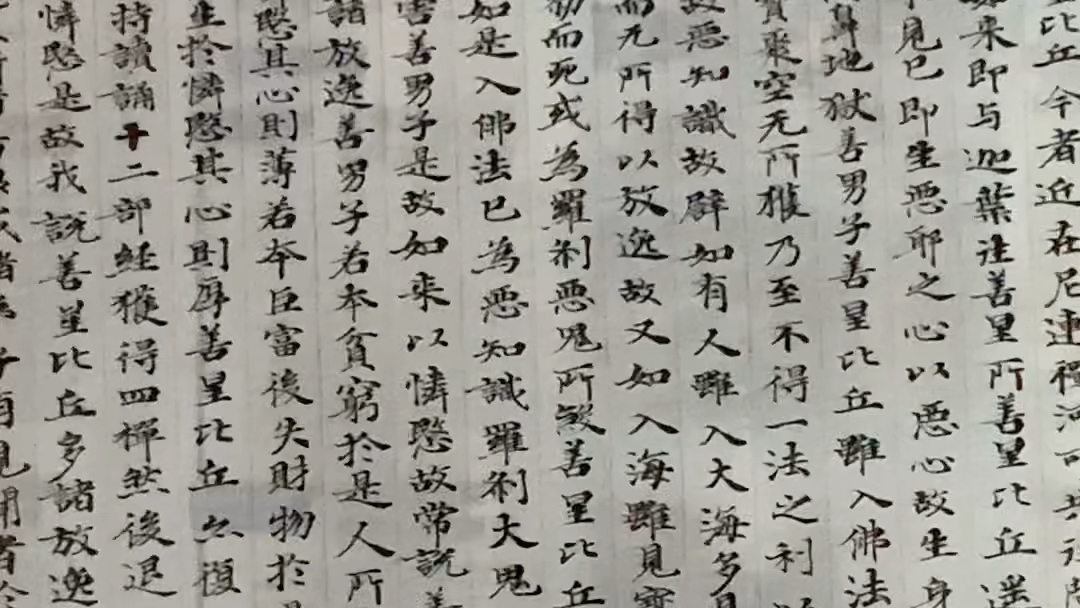 星比丘今者近在尼連禪河可共
如来即与迦葉往善星所善星比丘遥
見已即生惡耶之心以惡心故生身
鼻地獄善男子善星比丘雖入佛法
寶聚空无所獲乃至不得一法之利以
故惡知識故譬如有人雖入大海多見
而无所得以放逸故又如入海雖見寶
而死或為羅刹惡鬼所煞善星比丘
如是入佛法已為惡知識羅刹大鬼
害善男子是故如来以憐愍故常説善
諸放逸善男子若本貧窮於是人所
愍其心則薄若本巨富後失財物於是
生於憐愍其心則厚善星比丘亦復
持讀誦十二部經獲得四禪然後退
憐愍是故我説善星比丘多諸放逸
見聞者於